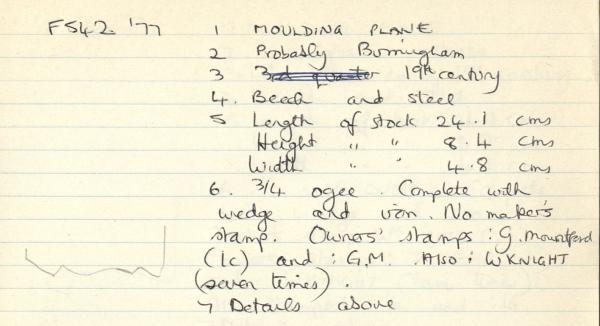 FS42. '77 1 MOULDING PLANE
2 Probably Birmingham
3 3rd quarter 19th century
4. Beech and steel
5 Length of stock 24.1 cms
Height " " 8.4 cms
Width " " 4.8 cms
6. 3/4 ogee. Complete with
wedge and iron. No maker's
stamp. Owners' stamps: G. Mountford
(1c) and : G.M. Also : W KNIGHT
(seven times).
7 Details above